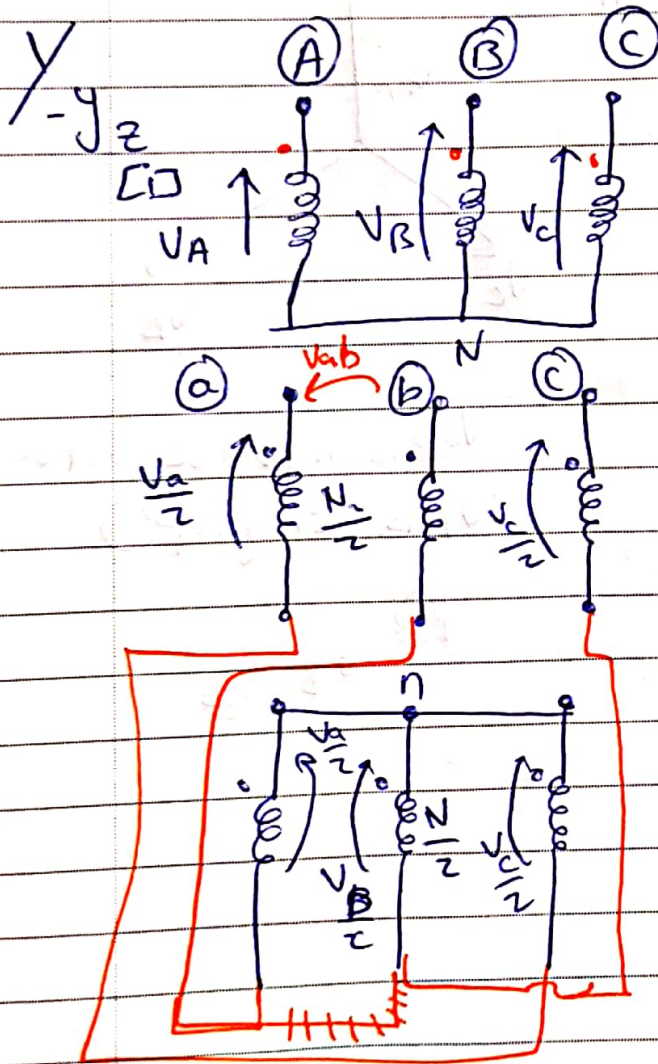 Y-yz
A B C
VA VB VC
N
Vab
a b c
Va/2 N₂/2 Vc/2
n
Va/2
VB/2 N/2 Vc/2